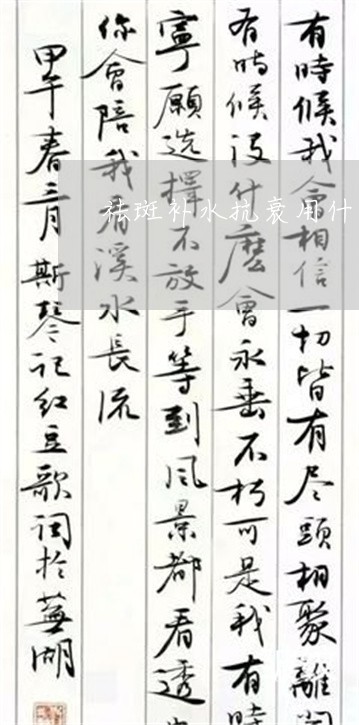 有時候我会相信一切皆有尽頭相聚離開
有時候没什麽會永垂不朽可是我有時
寧願选擇不放手等到风景都看透
你會陪我看溪水長流
甲午春三月斯琴记红豆歌词於蕪湖
祛斑补水抗衰用什